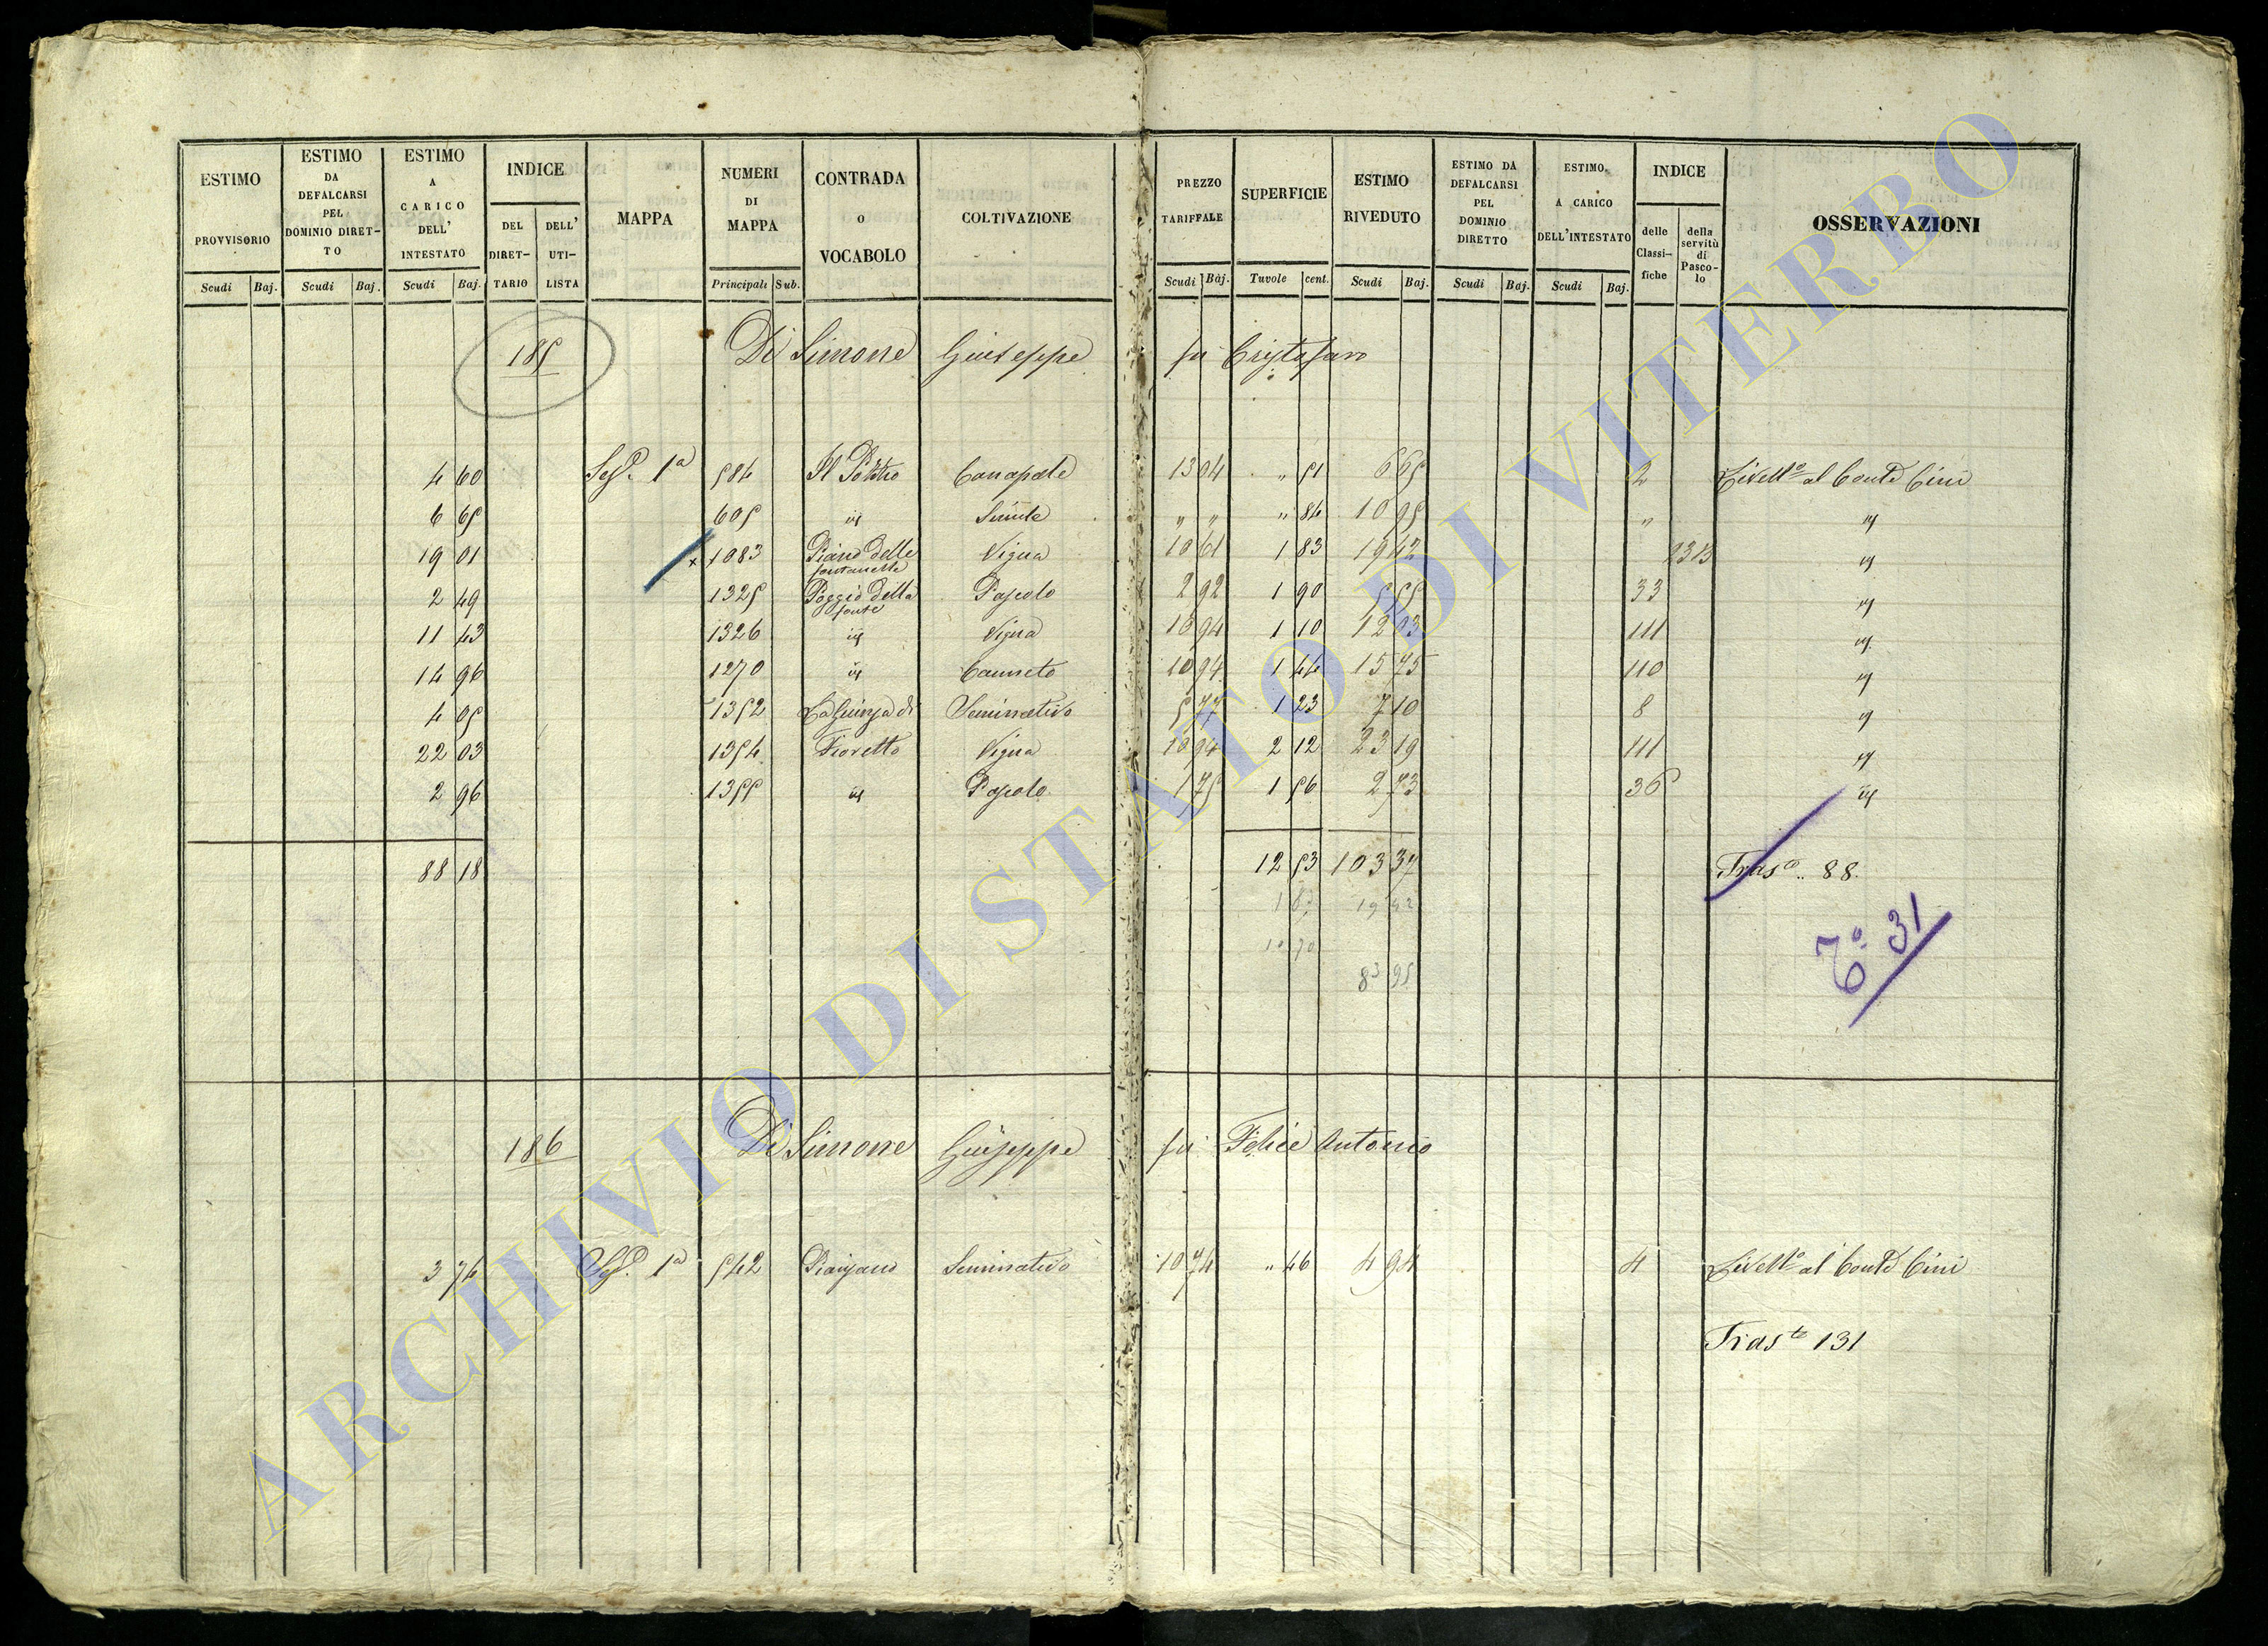 ESTIMO PROVVISORIO
ESTIMO DA DEFALCARSI PEL DOMINIO DIRET-TO
ESTIMO A CARICO DELL' INTESTATO
INDICE
DEL DIRET-TARIO
DELL' UTI-LISTA
MAPPA
NUMERI DI MAPPA
CONTRADA o VOCABOLO
COLTIVAZIONE
PREZZO TARIFFALE
SUPERFICIE
ESTIMO RIVEDUTO
ESTIMO DA DEFALCARSI PEL DOMINIO DIRETTO
ESTIMO A CARICO DELL'INTESTATO
INDICE
delle Classi-fiche
della servitù di Pasco-lo
OSSERVAZIONI
Scudi Baj. Scudi Baj. Scudi Baj. Principali Sub. Scudi Baj. Tuvole cent. Scudi Baj. Scudi Baj. Scudi Baj.
185 Di Simone Giuseppe fu Cristofaro
4 60 Sez. 1a 584 Il Canapale 13 04 " 51 6 65 2 Livell° al Conte Cini
6 65 605 id " " " 84 10 95 " id
19 01 x 1083 Piano delle fontanelle Vigna 10 61 1 83 19 42 23 13 id
2 49 1325 Poggio della fonte Pascolo 2 92 1 90 5 55 33 id
11 43 1326 id Vigna 10 94 1 10 12 03 111 id
14 96 1270 id Canneto 10 94 1 44 15 75 110 id
4 05 1352 Seminativo 5 77 1 23 7 10 8 id
22 03 1354 Fioretto Vigna 10 94 2 12 23 19 111 id
2 96 1355 id Pascolo 1 75 1 56 2 73 36 id
88 18 12 53 103 37 Tras° 88
1 83 19 42
10 70
83 95
T° 31
186 Di Simone Giuseppe fu Felice Antonio
3 76 Sez. 1a 542 Pianzano Seminativo 10 74 " 46 4 94 4 Livell° al Conte Cini
Trasto 131
ARCHIVIO DI STATO DI VITERBO